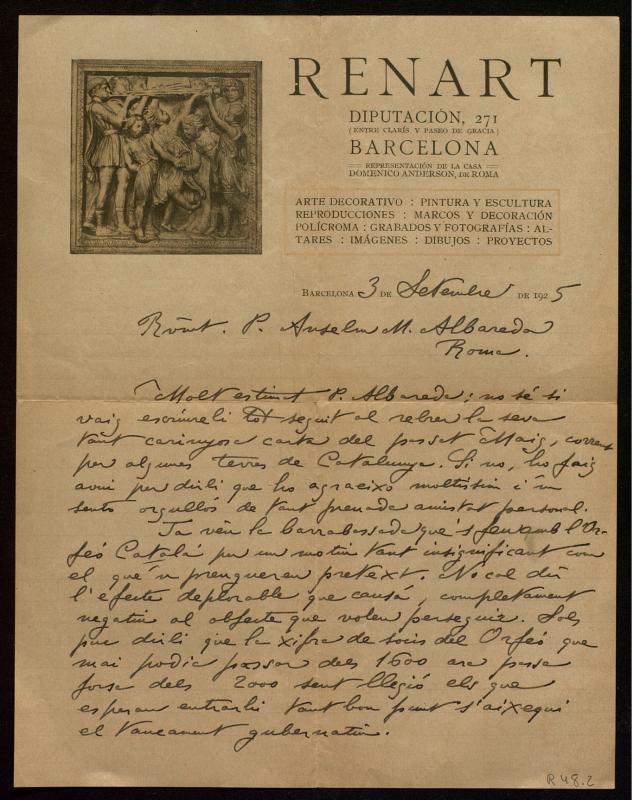 RENART
DIPUTACIÓN, 271
(ENTRE CLARÍS Y PASEO DE GRACIA)
BARCELONA
REPRESENTACIÓN DE LA CASA
DOMENICO ANDERSON, DE ROMA
ARTE DECORATIVO : PINTURA Y ESCULTURA
REPRODUCCIONES : MARCOS Y DECORACIÓN
POLÍCROMA : GRABADOS Y FOTOGRAFÍAS : AL-
TARES : IMÁGENES : DIBUJOS : PROYECTOS
BARCELONA 3 DE Setembre DE 1925
P. Anselm M. Albareda
Roma.
Molt estimat P. Albareda: no sé si
vaig escriureli tot seguit al rebrer la seva
tant carinyosa carta del passat Maig, corrent
per algunes terres de Catalunya. Si no, ho faig
avui per dirli que ho agraeixo moltíssim i 'm
sento orgullós de tant preuada amistat personal.
Ja véu la barrabassada que's feu amb l'Or-
feó Catalá per un motiu tant insignificant com
el que 'n prengueren pretext. No cal dir
l'efecte deplorable que causá, completament
negatiu al objecte que volen perseguir. Sols
puc dirli que la xifra de socis del Orfeó que
mai podia passar dels 1600 ara passa
forsa dels 2000 sent llegió els que
esperan entrarhi tant bon punt s'aixequi
el tancament gubernatiu.
R 48.2